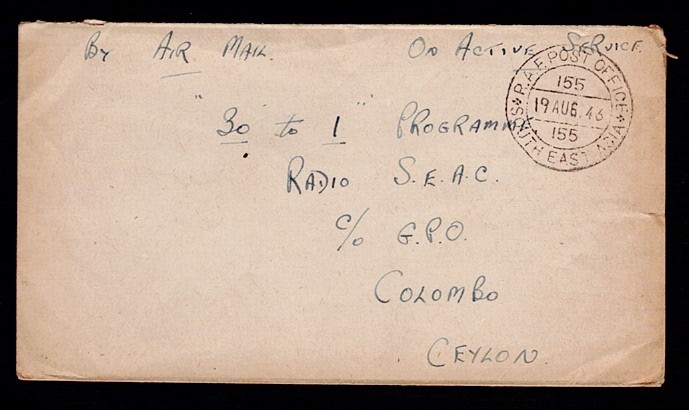 By Air Mail. On Active Service.
R.A.F. POST OFFICE
155
19 AUG. 46
155
SOUTH EAST ASIA
"30 to 1" Programme
Radio S.E.A.C.
c/o G.P.O.
Colombo
Ceylon.